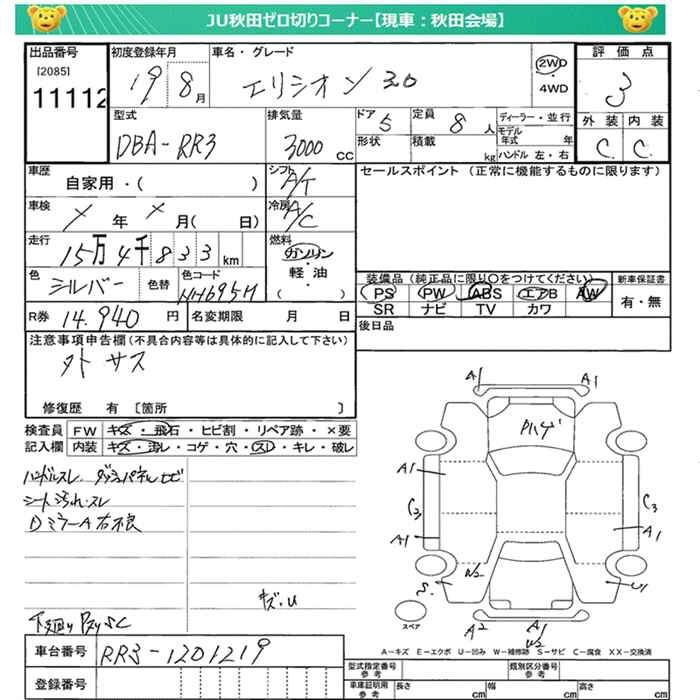 JU秋田ゼロ切りコーナー【現車：秋田会場】
出品番号
[2085]
11112
初度登録年月
19 8月
車名・グレード
エリシオン 3.0
2WD
・
4WD
評価点
3
外装 内装
C C
型式
DBA-RR3
排気量
3000 CC
ドア 5
形状
定員 8人
積載 kg
ディーラー・並行
モデル年式 年
ハンドル 左・右
車歴
自家用・( )
シフト A/T
車検
× 年 × 月( 日)
冷房 A/C
走行
15万4千833km
燃料
ガソリン
軽油
・( )
色 シルバー
色替
色コード
NH695M
セールスポイント（正常に機能するものに限ります）
装備品（純正品に限り○をつけてください）
PS PW ABS エアB AW
SR ナビ TV カワ
新車保証書
有・無
R券 14,940 円
名変期限 月 日
後日品
注意事項申告欄(不具合内容等は具体的に記入して下さい)
タトサス
修復歴 有 〔箇所 〕
検査員
記入欄
FW キズ・飛石・ヒビ割・リペア跡・×要
内装 キズ・汚レ・コゲ・穴・スレ・キレ・破レ
ハンドルスレ ダッシュパネルヒビ
シート汚れ・スレ
DミラーA右不良
キズ・U
A1 A1
A1 A1
C3 C3
A1
W2
S U1
スペア
A2 A1
W2
A－キズ E－エクボ U－凹み W－補修跡 S－サビ C－腐食 XX－交換済
車台番号 RR3-1201219
登録番号
型式指定番号
参考
類別区分番号
参考
車庫証明用
参考
長さ cm
幅 cm
高さ cm